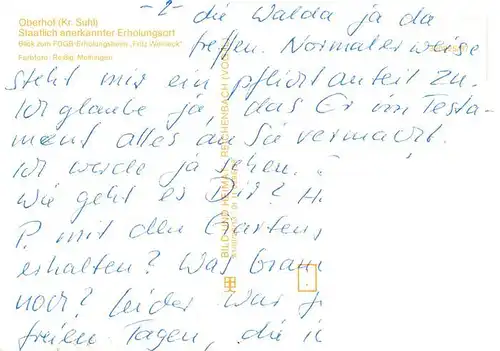 Oberhof (Kr. Suhl)
Staatlich anerkannter Erholungsort
Blick zum FDGB-Erholungsheim „Fritz Weineck"
Farbfoto: Reilig, Meiningen
-2- die Walda ja da
treffen. Normalerweise
steht mir ein pflichtanteil zu.
Ich glaube ja, das Er im Testa-
ment alles an Sie vermacht.
Ich werde ja sehen.
Wie geht es Dir? H
P. mit den Garten
erhalten? Was
noch? leider war
freien Tagen, die
BILD UND HEIMAT REICHENBACH (VOGTL